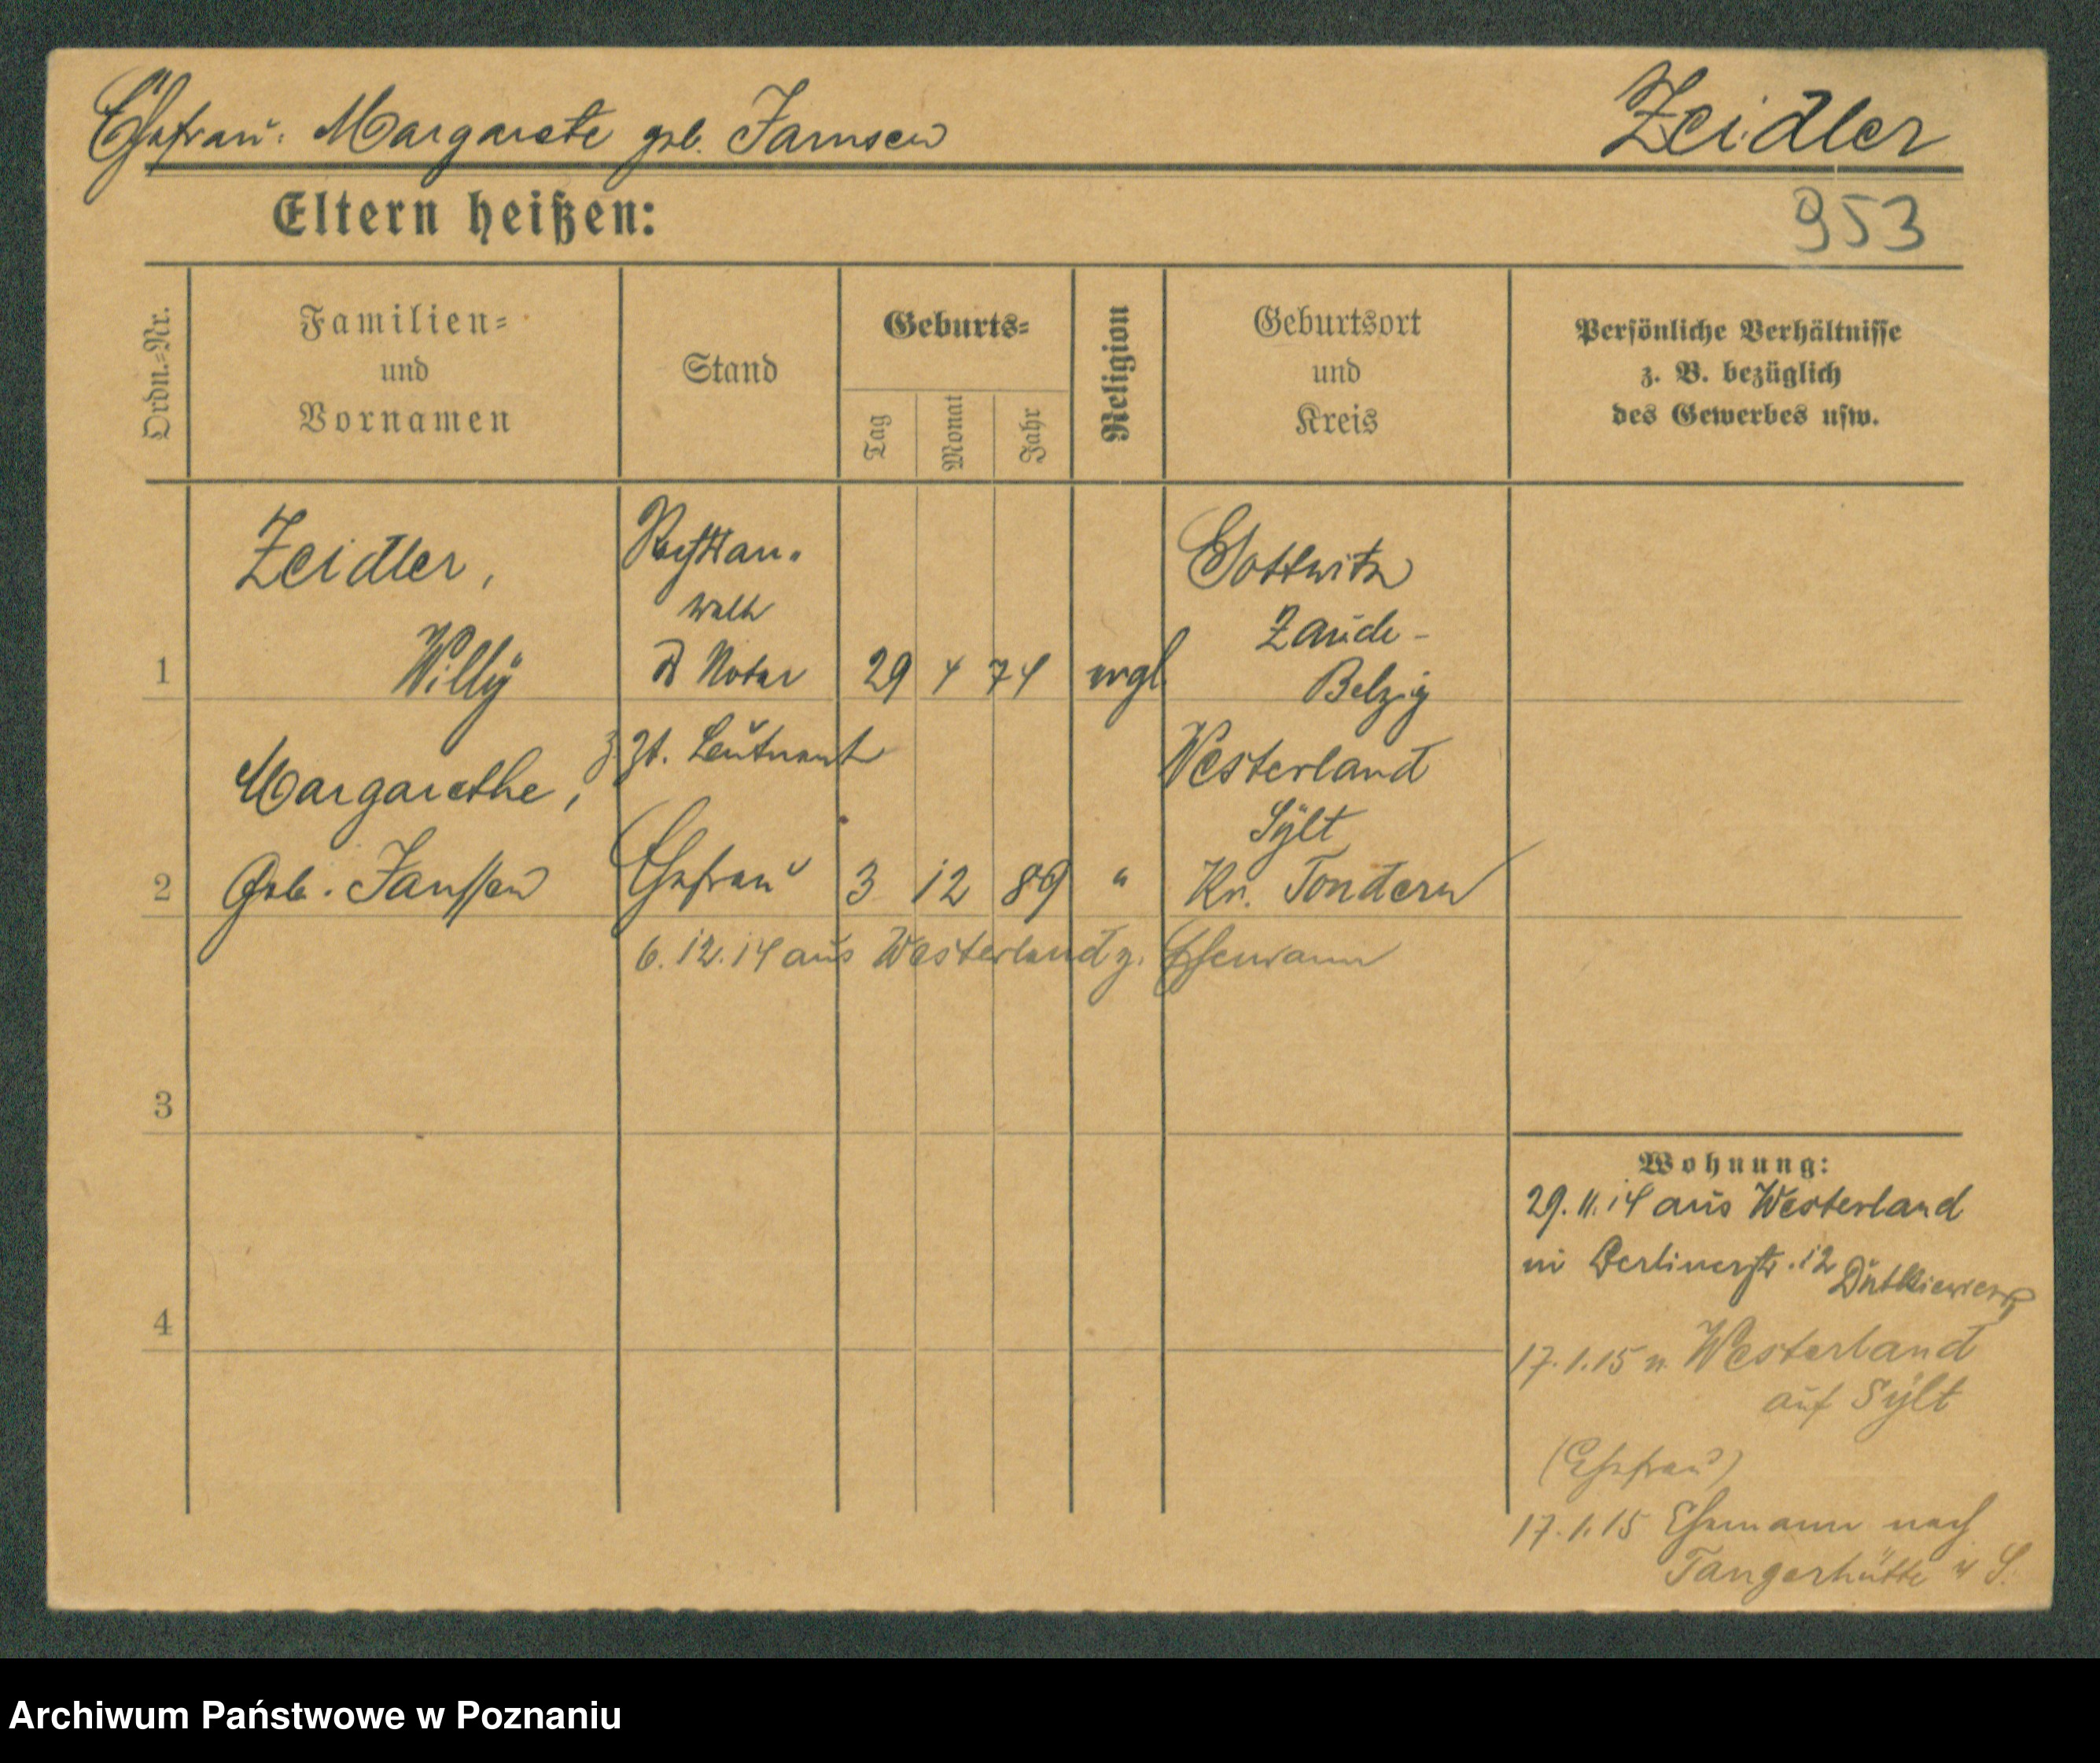 Ehefrau: Margarete geb. Jannsen
Zeidler
Eltern heißen:
953
Ordn.-Nr.
Familien=
und
Vornamen
Stand
Geburts=
Tag
Monat
Jahr
Religion
Geburtsort
und
Kreis
Persönliche Verhältnisse
z. B. bezüglich
des Gewerbes usw.
1
Zeidler,
Willy
Rechtsan-
walt
Notar
29 4 74
evgl.
Gottwitz
Zauch-
Belzig
z. Zt. Leutnant
2
Margarethe,
Geb. Janssen
Ehefrau
3 12 89
"
Westerland
Sylt
Kr. Tondern
6.12.14 aus Westerland z. Ehemann
3
4
Wohnung:
29.11.14 aus Westerland
in Berlinerstr. 12 Dutkiewicz
17.1.15 n. Westerland
auf Sylt
(Ehefrau)
17.1.15 Ehemann nach
Tangerhütte
Archiwum Państwowe w Poznaniu